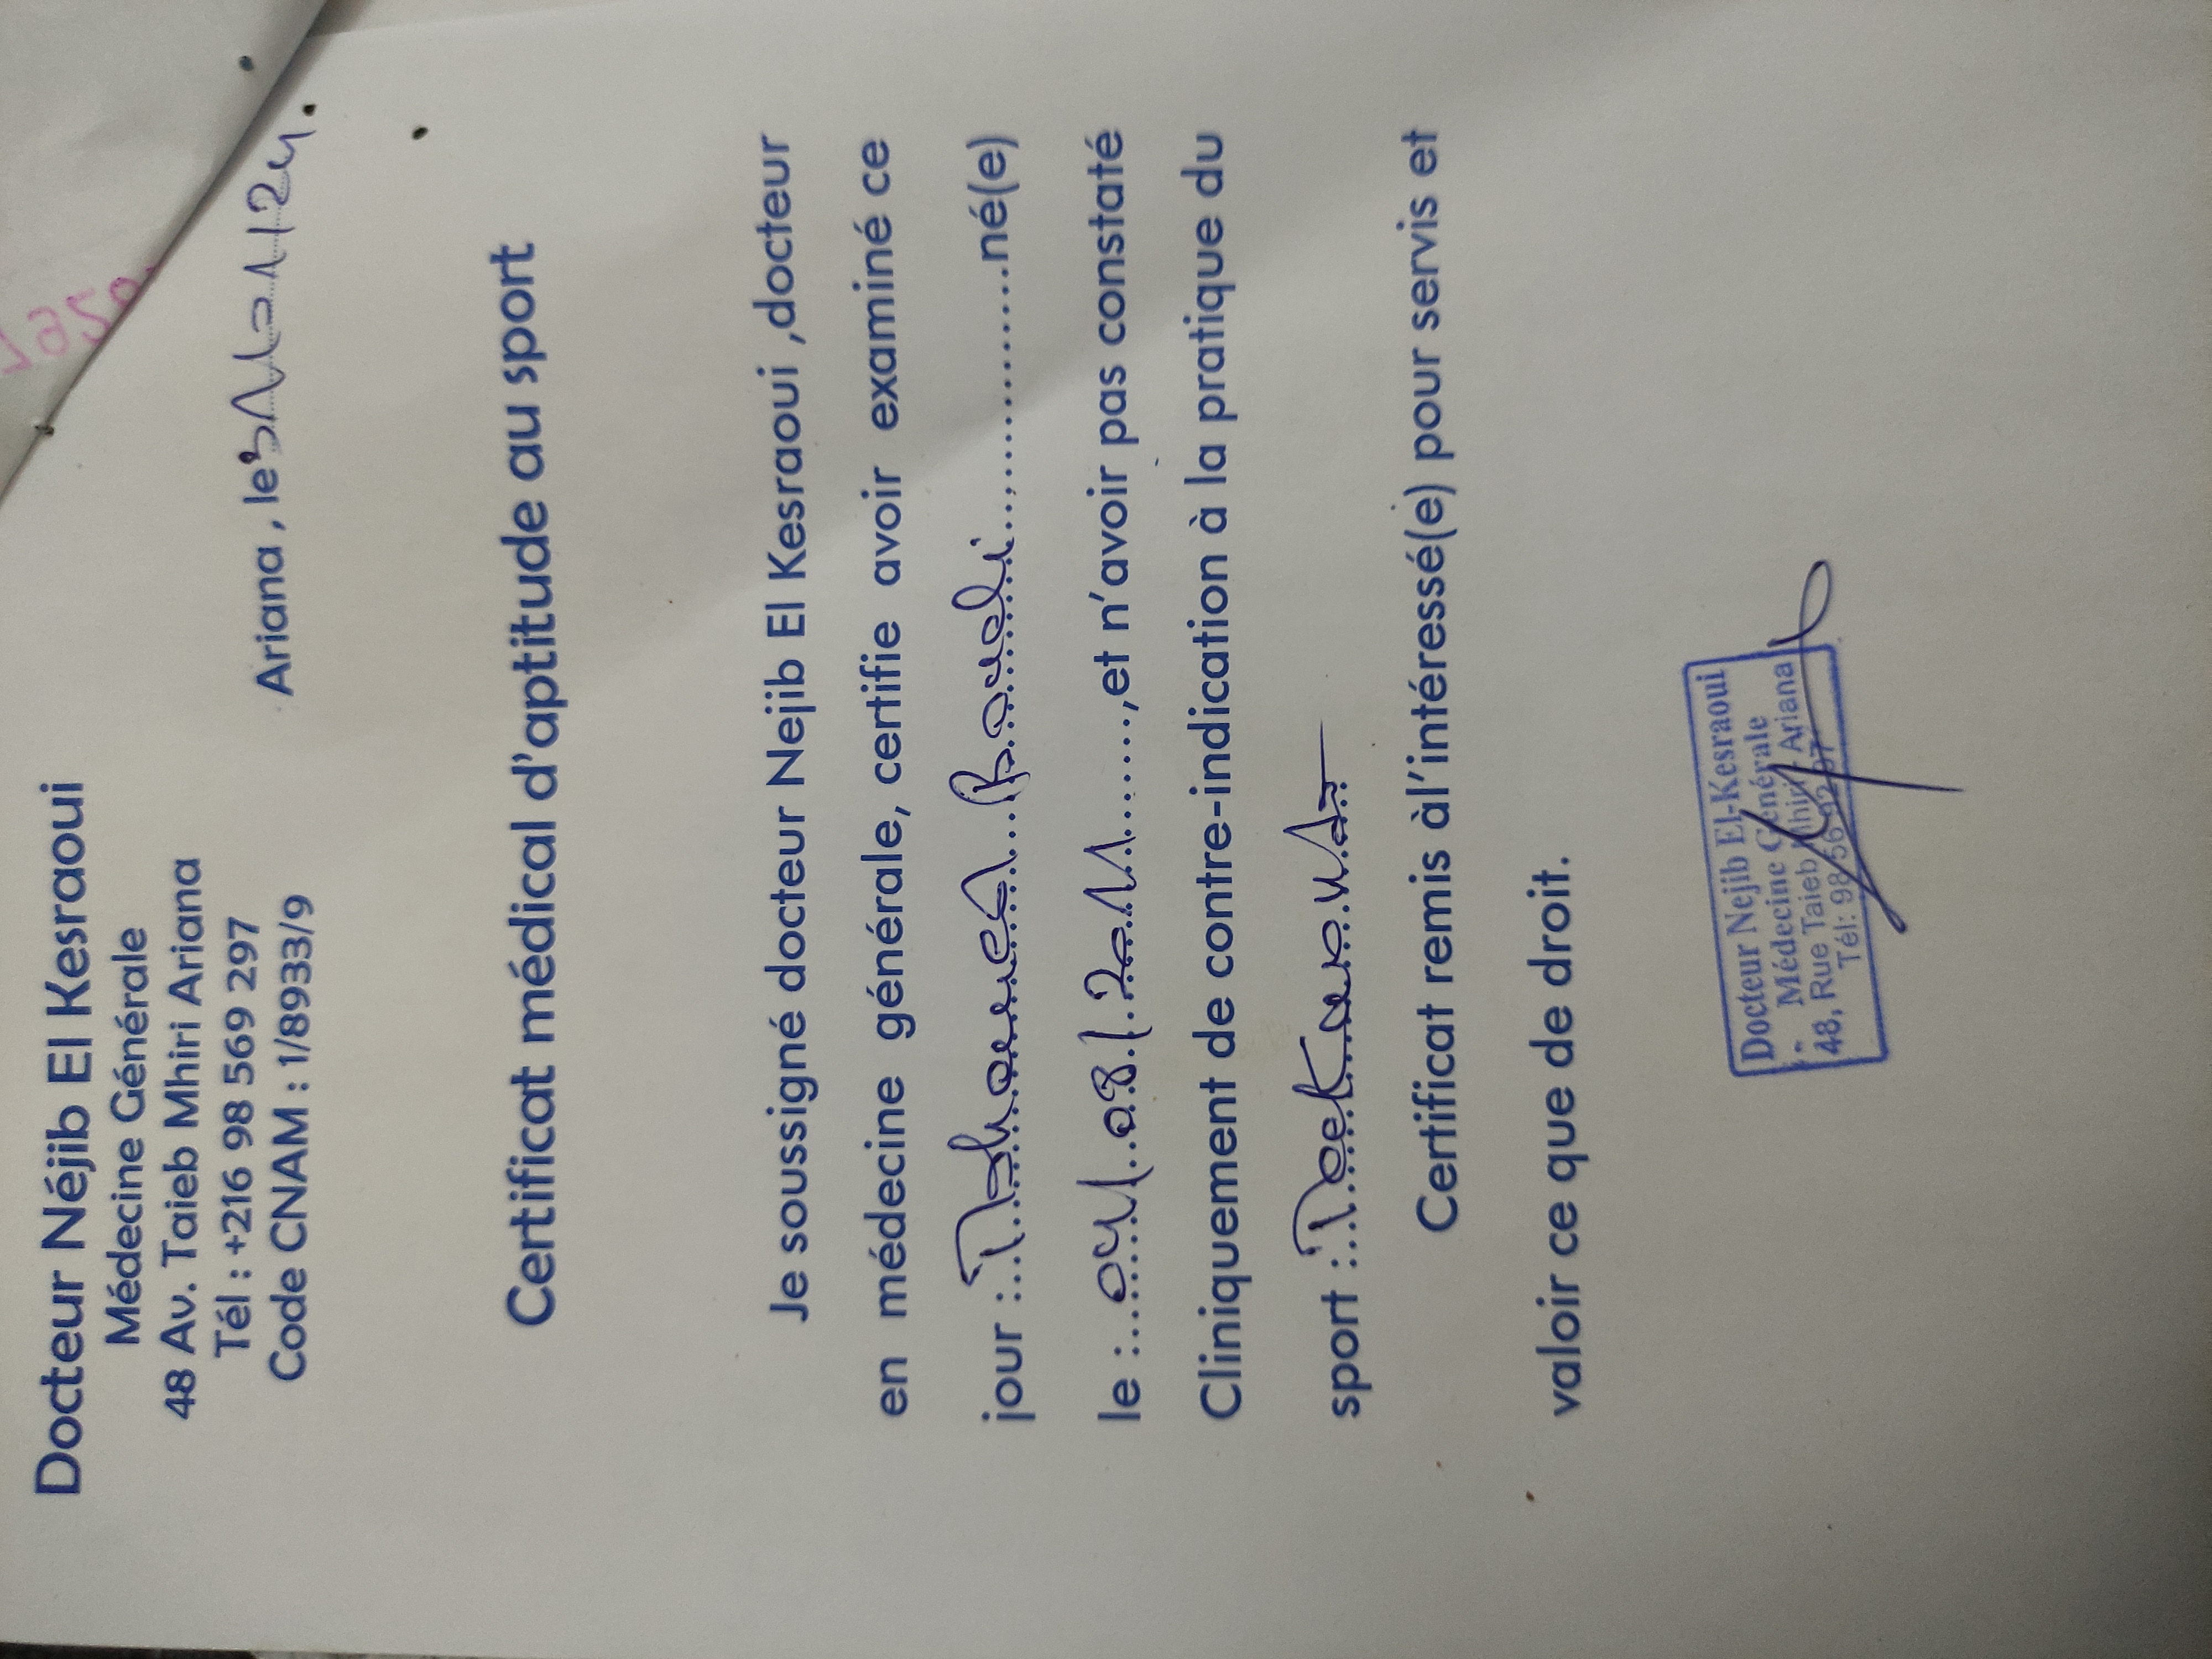 Docteur Néjib El Kesraoui
Médecine Générale
48 Av. Taieb Mhiri Ariana
Tél : +216 98 569 297
Code CNAM : 1/8933/9
Ariana , le
Certificat médical d'aptitude au sport
Je soussigné docteur Nejib El Kesraoui ,docteur
en médecine générale, certifie avoir examiné ce
jour : né(e)
le : 04/08/2011 ,et n'avoir pas constaté
Cliniquement de contre-indication à la pratique du
sport : Taekwondo
Certificat remis àl'intéressé(e) pour servis et
valoir ce que de droit.
Docteur Nejib El-Kesraoui
Médecine Générale
48, Rue Taieb Mhiri - Ariana
Tél: 98